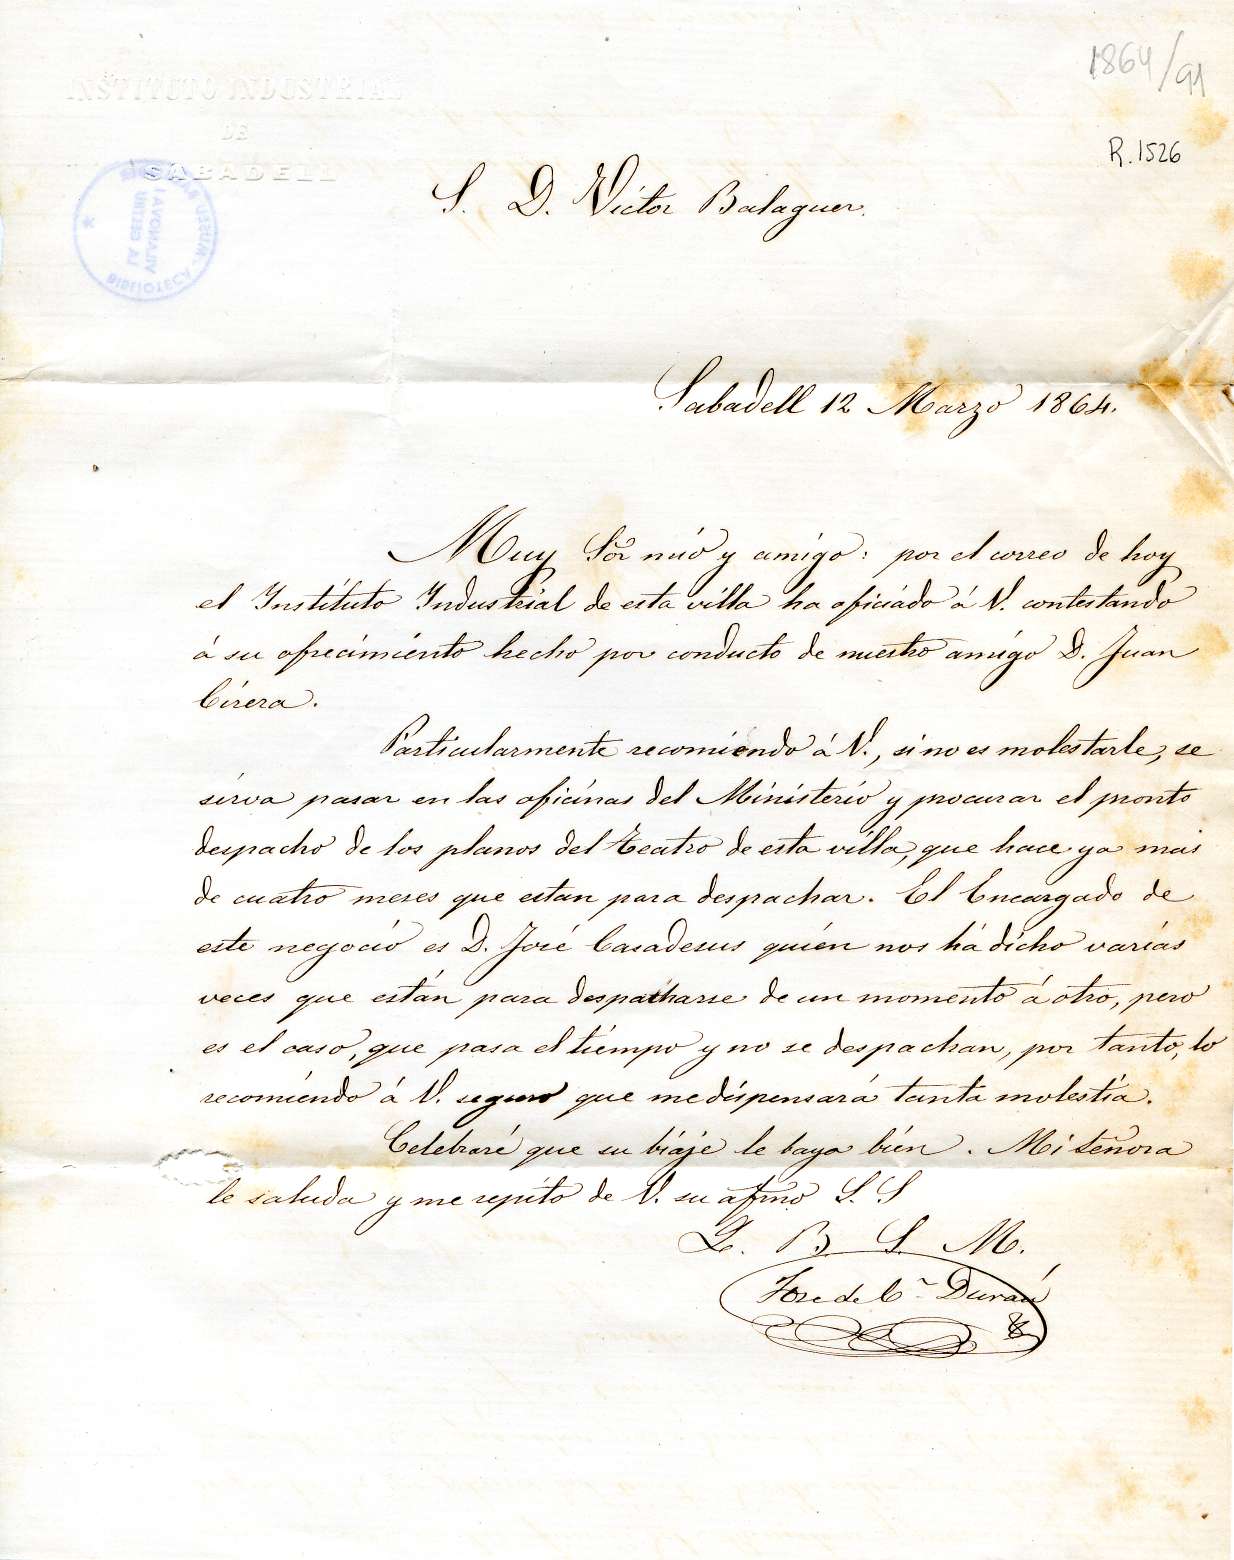 1864/91
INSTITUTO INDUSTRIAL
DE
SABADELL
R. 1526
BIBLIOTECA MUSEU
VILANOVA I
LA GELTRÚ
S. D. Victor Balaguer.
Sabadell 12 Marzo 1864.
Muy Sor mio y amigo: por el correo de hoy
el Instituto Industrial de esta villa ha oficiado á V. contestando
á su ofrecimiento hecho por conducto de nuestro amigo D. Juan
Cirera.
Particularmente recomiendo á V., si no es molestarle, se
sirva pasar en las oficinas del Ministerio y procurar el pronto
despacho de los planos del teatro de esta villa, que hace ya mas
de cuatro meses que estan para despachar. El Encargado de
este negocio es D. José Casadesus quién nos há dicho varias
veces que están para despacharse de un momento á otro, pero
es el caso, que pasa el tiempo y no se despachan, por tanto, lo
recomiendo á V. seguro que me dispensará tanta molestia.
Celebraré que su biaje le baya bién. Mi señora
le saluda y me repito de V. su afmo S. S
Q. B. S. M.
Jose de Ca. Durán